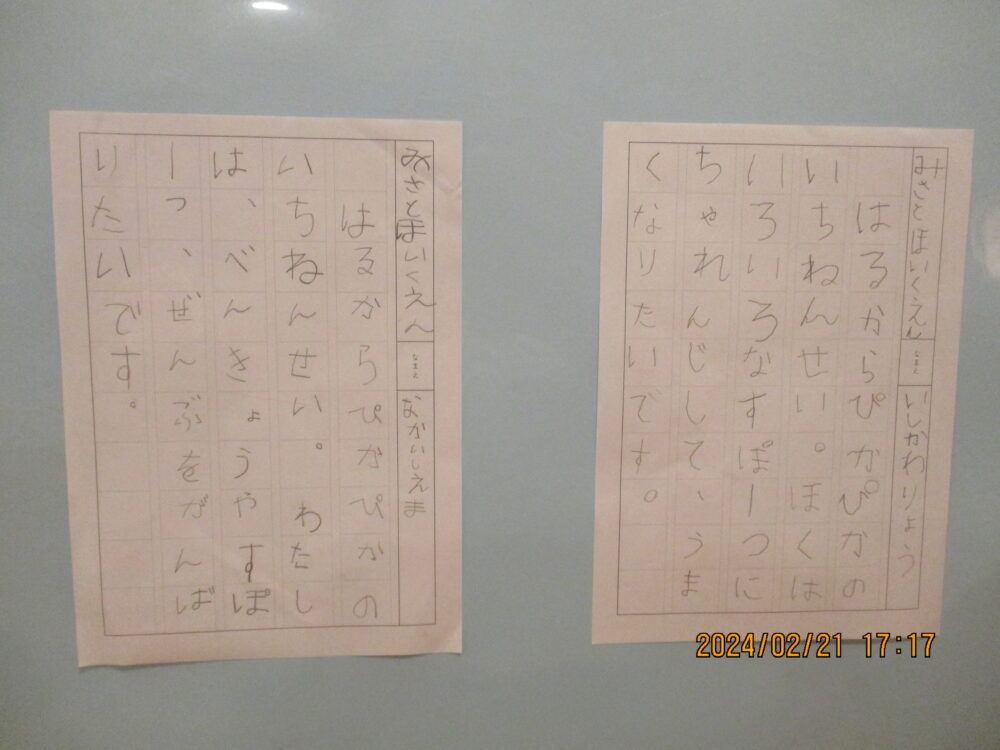 みさとほいくえん なまえ いしかわりょう
はるからぴかぴかの
いちねんせい。ほくは
いろいろなすぽーつに
ちゃれんじして、うま
くなりたいです。
みさとほいくえん なまえ なかいしえま
はるからぴかぴかの
いちねんせい。わたし
は、べんきょうやすぽ
ーつ、ぜんぶをがんば
りたいです。
2024/02/21 17:17